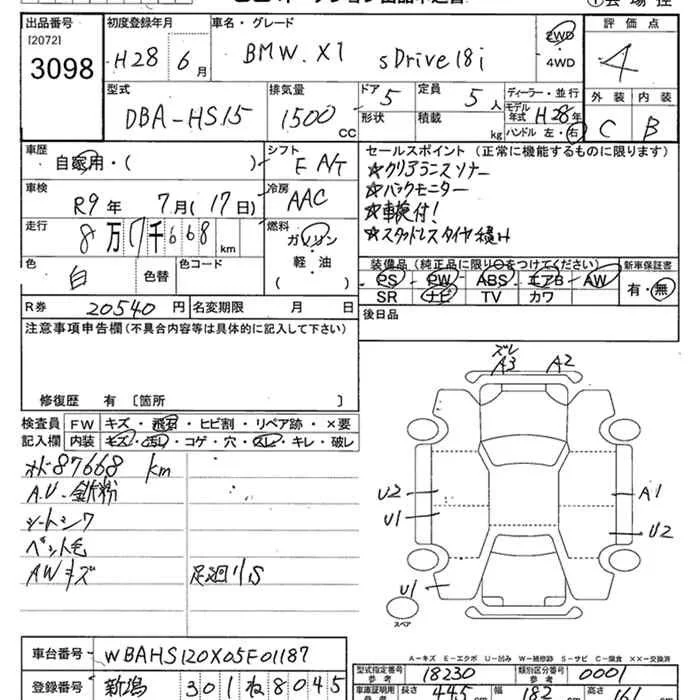 出品番号 初度登録年月 車名・グレード 評価点
[2072]
3098 H28年 6月 BMW. X1 sDrive18i 2WD・4WD 4
型式 排気量 ドア 定員 ディーラー・並行 外装 内装
DBA-HS15 1500cc 5 5人 モデル年式 H28年 C B
形状 積載 kg ハンドル 左・右
車歴 自家用・( ) シフト F A/T セールスポイント (正常に機能するものに限ります)
☆クリアランスソナー
車検 R9年 7月(17日) 冷房 AAC ☆バックモニター
走行 8万7千668km 燃料 ガソリン・軽油 ☆車検付!
☆スタッドレスタイヤ積み
色 白 色替 色コード 装備品(純正品に限り○をつけてください) 新車保証書
PS PW ABS エアB AW 有・無
SR ナビ TV カワ
R券 20540円 名変期限 月 日 後日品
注意事項申告欄(不具合内容等は具体的に記入して下さい)
修復歴 有 [箇所 ]
ズレ
A3 A2
検査員記入欄 FW キズ・飛石・ヒビ割・リペア跡・×要
内装 キズ・汚れ・コゲ・穴・スレ・キレ・破レ
オド87668km
A.U-鉄粉
シートシワ
ペット毛
AWキズ 足廻りS
U2 A1
U1 U2
U1
スペア
A-キズ E-エクボ U-凹み W-補修跡 S-サビ C-腐食 XX-交換済
車台番号 WBAHS120X05F01187 型式指定番号 参考 18230 類別区分番号 参考 0001
登録番号 新潟 301 ね 8045 車庫証明用 参考 長さ 445 幅 182 高さ 161